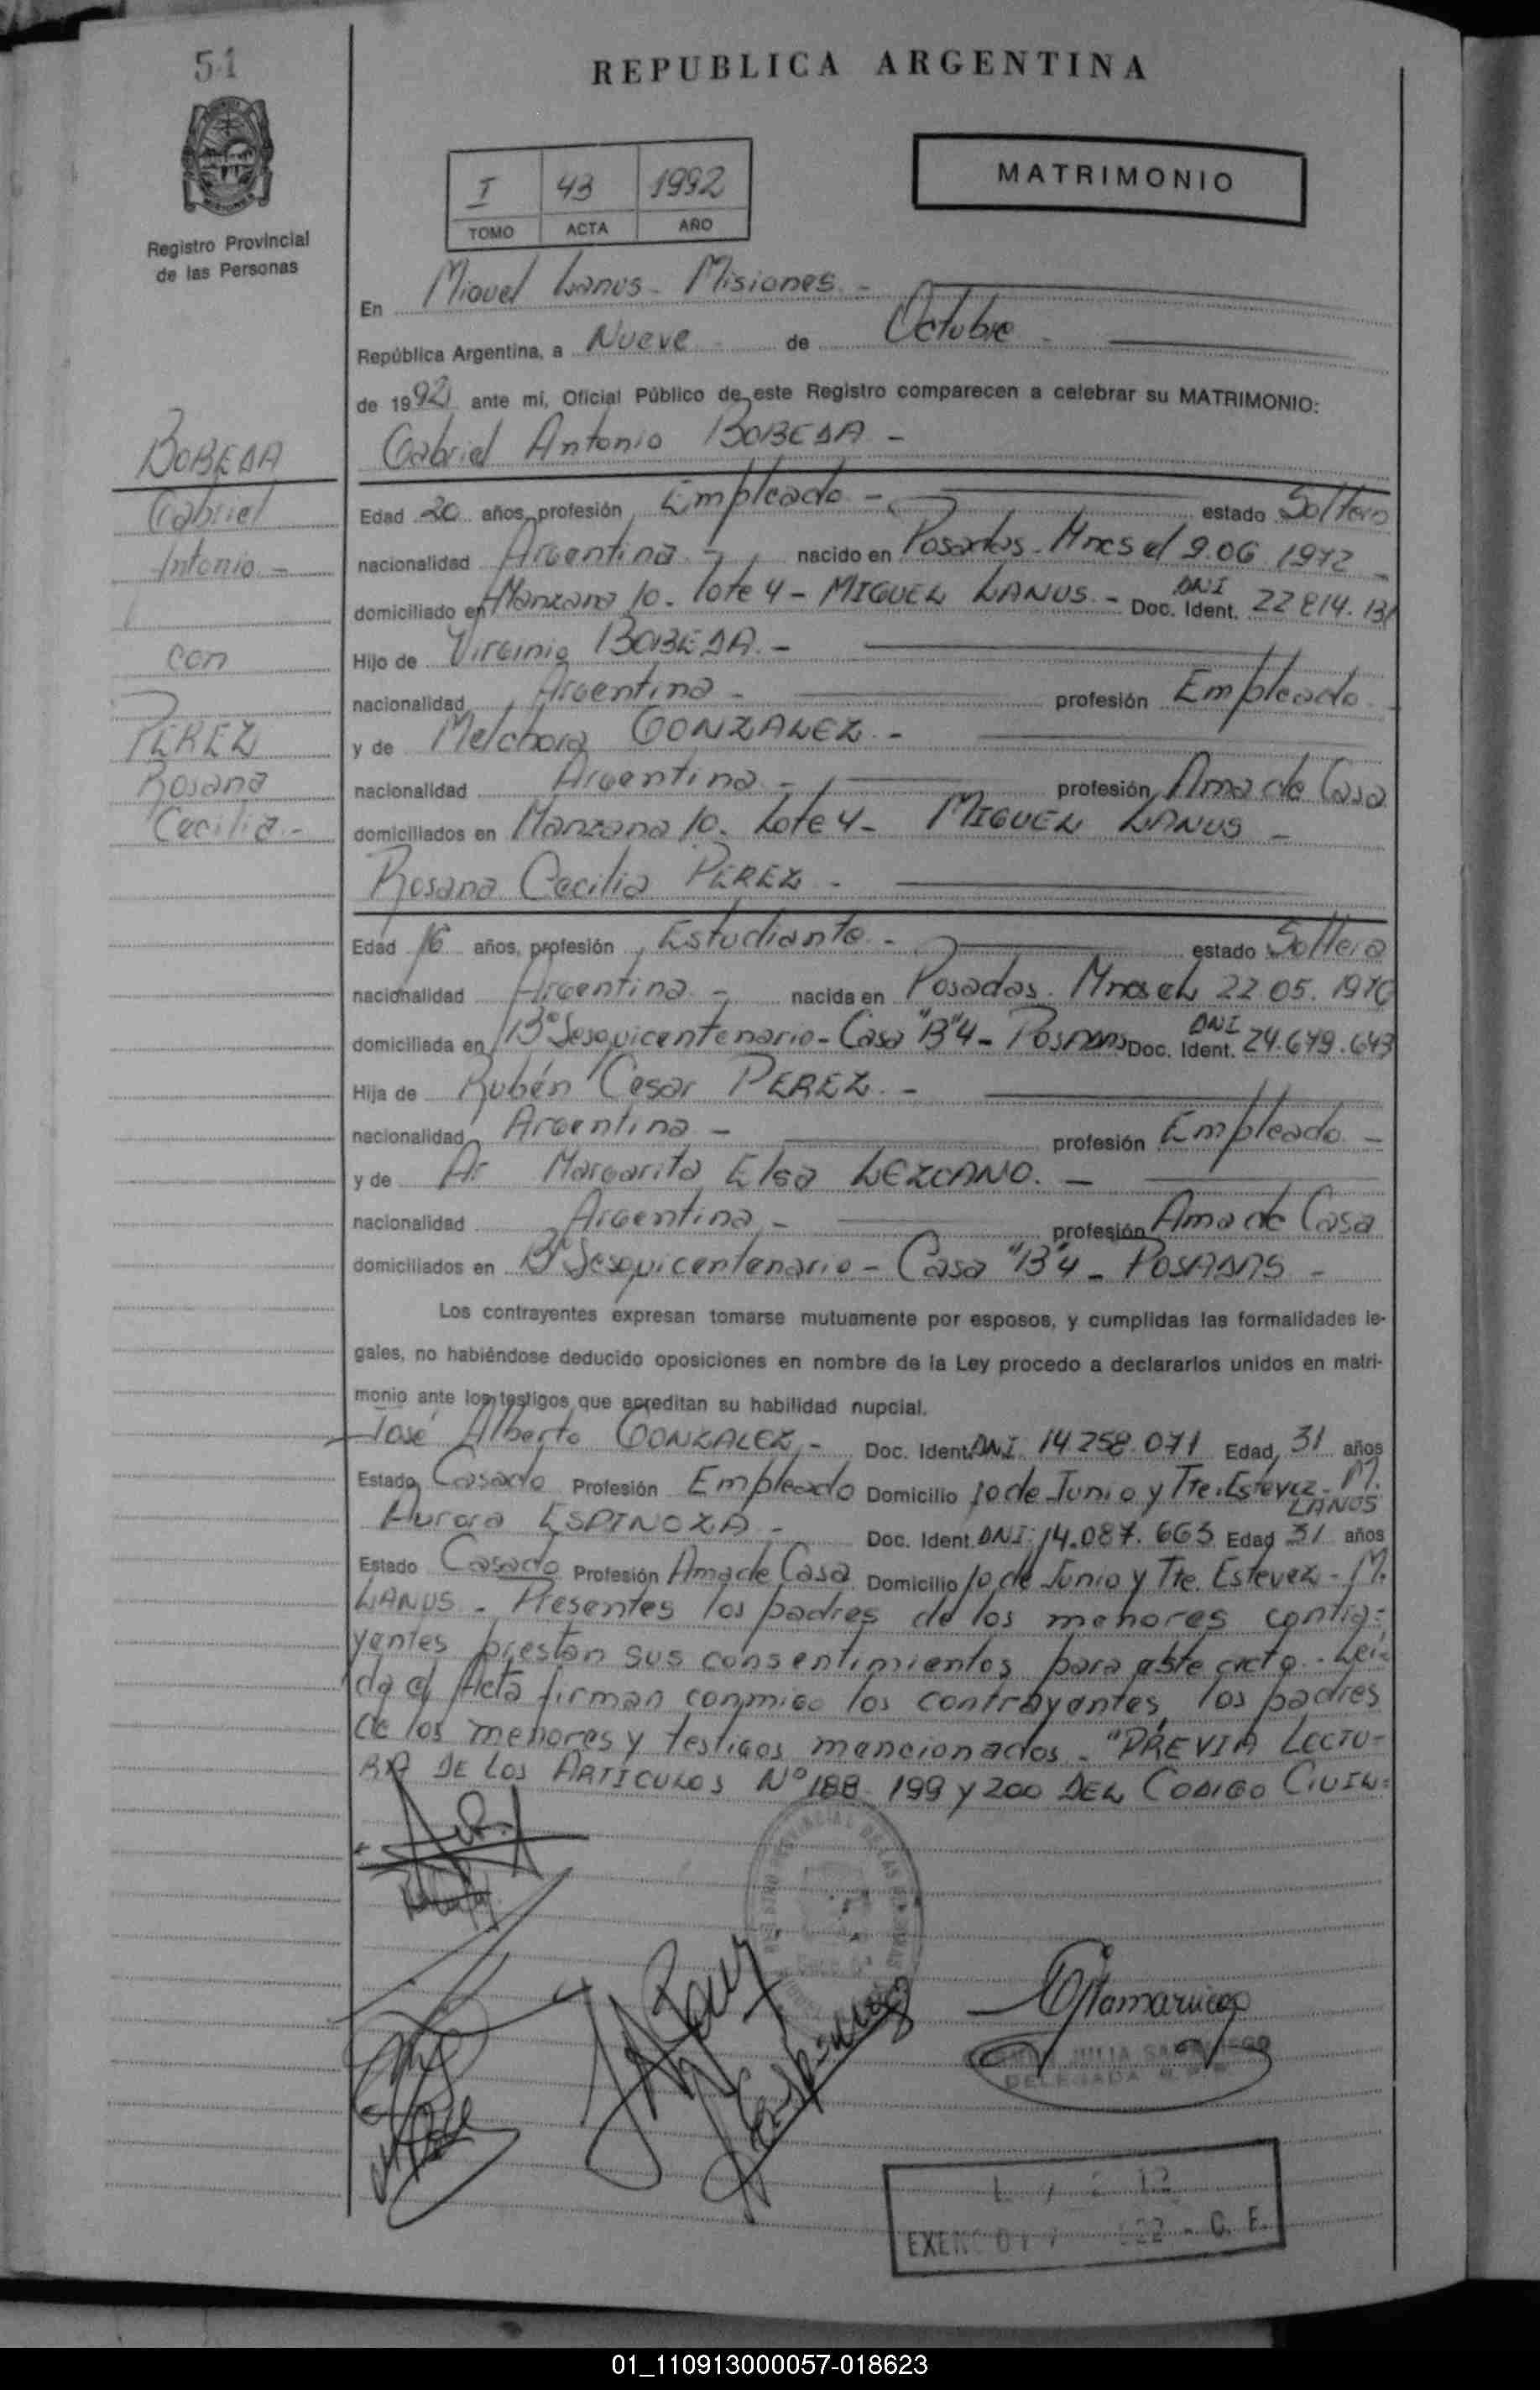 51
REPUBLICA ARGENTINA
Registro Provincial
de las Personas
I 43 1992
TOMO ACTA AÑO
MATRIMONIO
En Miguel Lanus - Misiones -
República Argentina, a Nueve de Octubre -
de 1992 ante mi, Oficial Público de este Registro comparecen a celebrar su MATRIMONIO:
BOBEDA
Gabriel
Antonio -
con
PEREZ
Rosana
Cecilia -
Gabriel Antonio BOBEDA -
Edad 20 años, profesión Empleado - estado Soltero
nacionalidad Argentina - nacido en Posadas - Mnes el 9.06 1972 -
domiciliado en Manzana 10 - lote 4 - MIGUEL LANUS - DNI Doc. Ident. 22 814. 131
Hijo de Virginio BOBEDA -
nacionalidad Argentina - profesión Empleado -
y de Melchora GONZALEZ -
nacionalidad Argentina - profesión Ama de Casa
domiciliados en Manzana 10. Lote 4 - MIGUEL LANUS -
Rosana Cecilia PEREZ -
Edad 16 años, profesión Estudiante - estado Soltera
nacionalidad Argentina - nacida en Posadas. Mnes el 22.05. 1976
domiciliada en Bº Sesquicentenario - Casa "B" 4 - POSADAS DNI Doc. Ident. 24.679.643
Hija de Rubén Cesar PEREZ. -
nacionalidad Argentina - profesión Empleado -
y de Ar Margarita Elsa LEZCANO. -
nacionalidad Argentina - profesión Ama de Casa
domiciliados en Bº Sesquicentenario - Casa "B" 4 - POSADAS -
Los contrayentes expresan tomarse mutuamente por esposos, y cumplidas las formalidades le-
gales, no habiéndose deducido oposiciones en nombre de la Ley procedo a declararlos unidos en matri-
monio ante los testigos que acreditan su habilidad nupcial.
José Alberto GONZALEZ, - Doc. Ident. DNI. 14.258.071 Edad, 31 años
Estado Casado Profesión Empleado Domicilio 10 de Junio y Tte. Estevez - M. LANUS
Aurora ESPINOZA - Doc. Ident. DNI: 14.087.663 Edad 31 años
Estado Casado Profesión Ama de Casa Domicilio 10 de Junio y Tte. Estevez - M.
LANUS - Presentes los padres de los menores contra-
yentes prestan sus consentimientos para este acto. Lei-
da el Acta firman conmigo los contrayentes, los padres
de los menores y testigos mencionados - "PREVIA LECTU-
RA DE LOS ARTICULOS Nº 188 - 199 y 200 DEL CODIGO CIVIL.
JULIA
DELEGADA
01_110913000057-018623